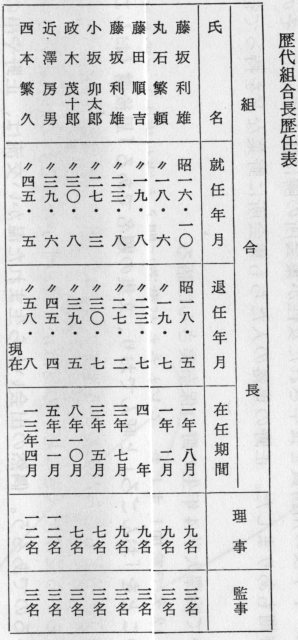 歴代組合長歴任表
組合長 理事 監事
氏名 就任年月 退任年月 在任期間
藤坂利雄 昭一六・一〇 昭一八・五 一年八月 九名 三名
丸石繁頼 〃一八・六 〃一九・七 一年二月 九名 三名
藤田順吉 〃一九・八 〃二三・七 四年 九名 三名
藤坂利雄 〃二三・八 〃二七・二 三年七月 九名 三名
小坂卯太郎 〃二七・三 〃三〇・七 三年五月 七名 三名
政木茂十郎 〃三〇・八 〃三九・五 八年一〇月 七名 三名
近澤房男 〃三九・六 〃四五・四 五年一一月 一二名 三名
西本繁久 〃四五・五 〃五八・八 現在 一三年四月 一二名 三名